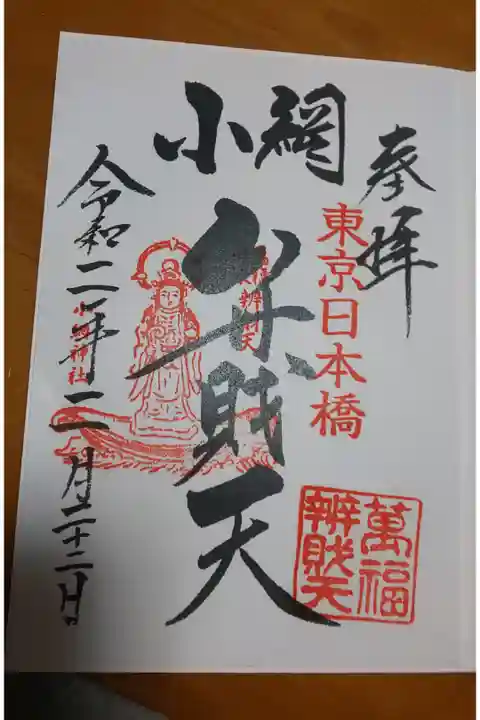 奉拝
東京日本橋
小網
弁財天
萬福
辨財天
小網神社
令和二年二月二十二日